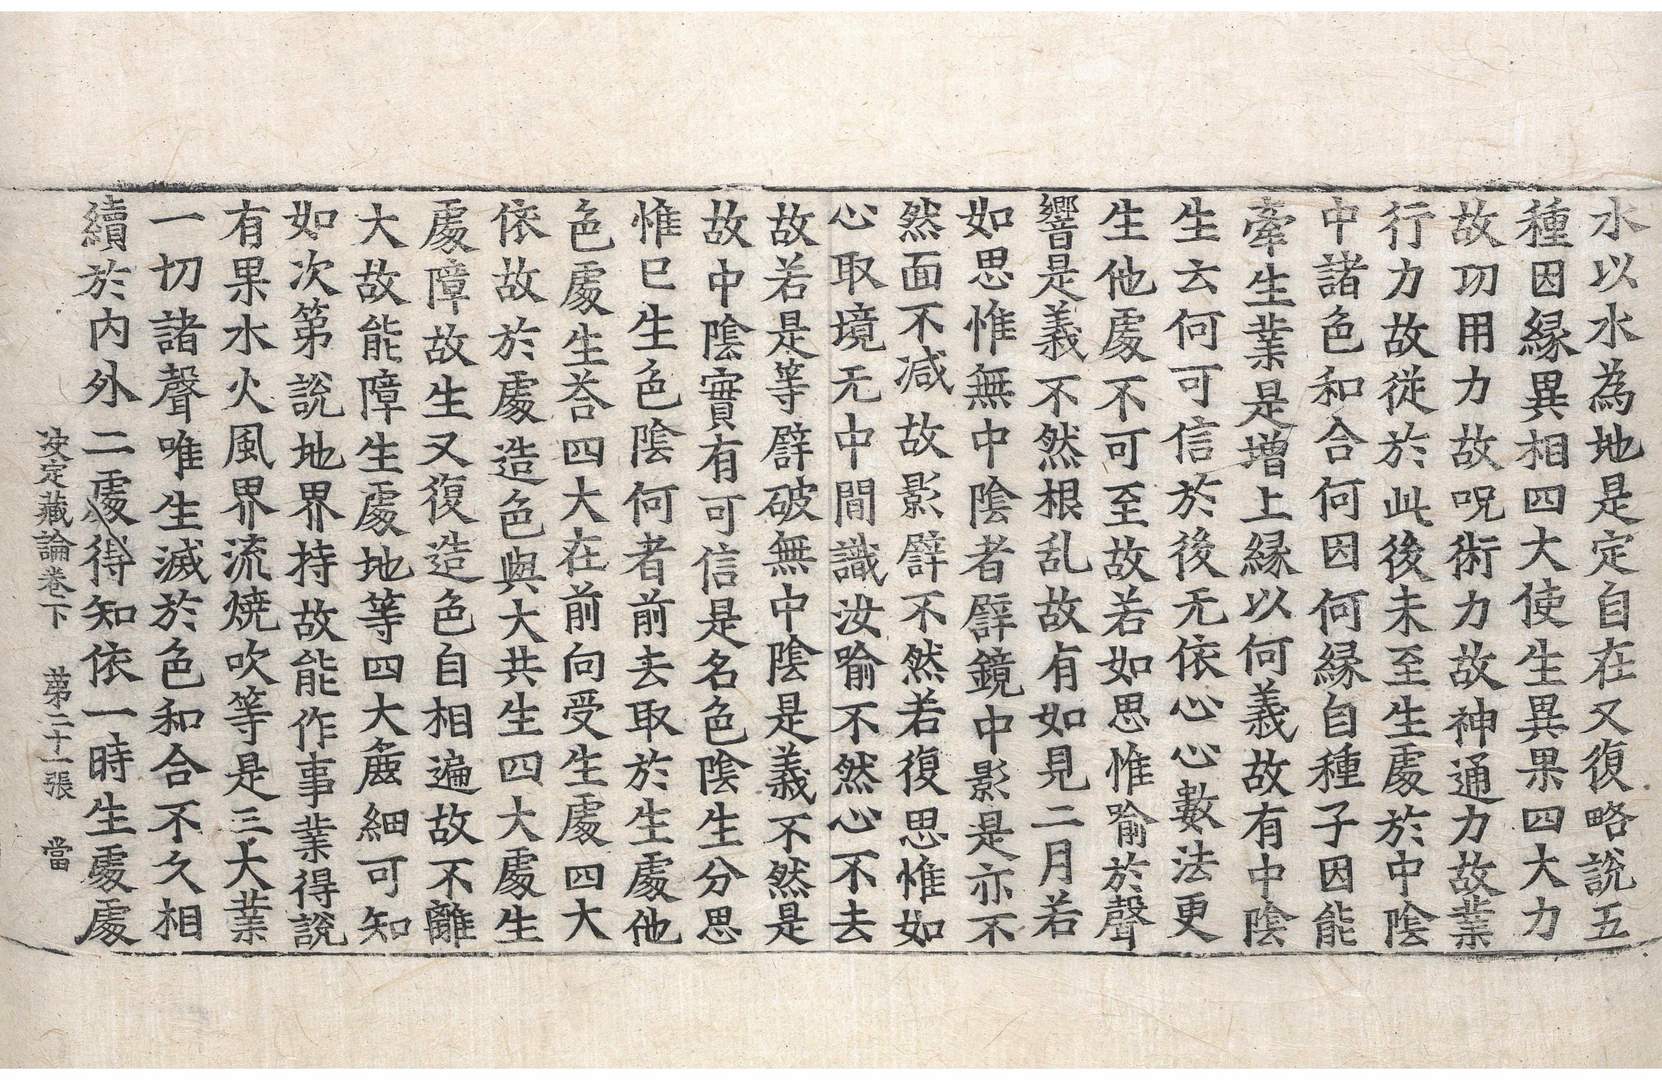 水以水為地是定自在又復略說五
種因縁異相四大使生異果四大力
故㓛用力故呪術力故神通力故業
行力故從於此後未至生處於中陰
中諸色和合何因何縁自種子因能
牽生業是增上縁以何義故有中陰
生去何可信於後无依心心數法更
生他處不可至故若如思惟喻於聲
響是義不然根乱故有如見二月若
如思惟無中陰者譬鏡中影是亦不
然面不减故影譬不然若復思惟如
心取境无中間識汝喻不然心不去
故若是等譬破無中陰是義不然是
故中陰實有可信是名色陰生分思
惟已生色陰何者前去取於生處他
色處生荅四大在前向受生處四大
依故於處造色與大共生四大處生
處障故生又復造色自相遍故不離
大故能障生處地等四大麁細可知
如次第說地界持故能作事業得說
有果水火風界流焼吹等是三大業
一切諸聲唯生滅於色和合不久相
續於內外二處得知依一時生處處
决定藏論卷下　苐二十一張　當